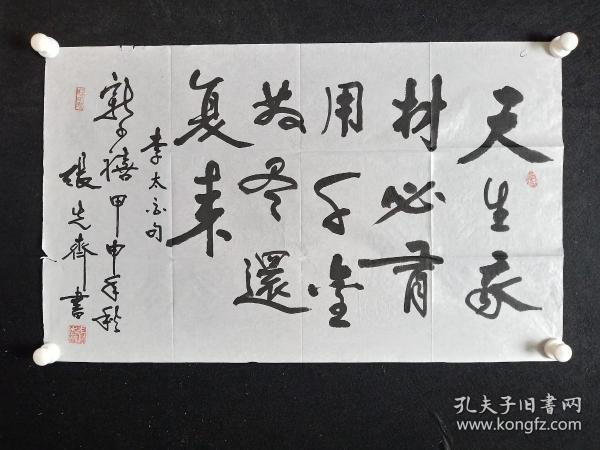 天生我
材必有
用千金
散尽還
复来
李太白句
甲申年秋
張先齊書
孔夫子旧書网
www.kongfz.com